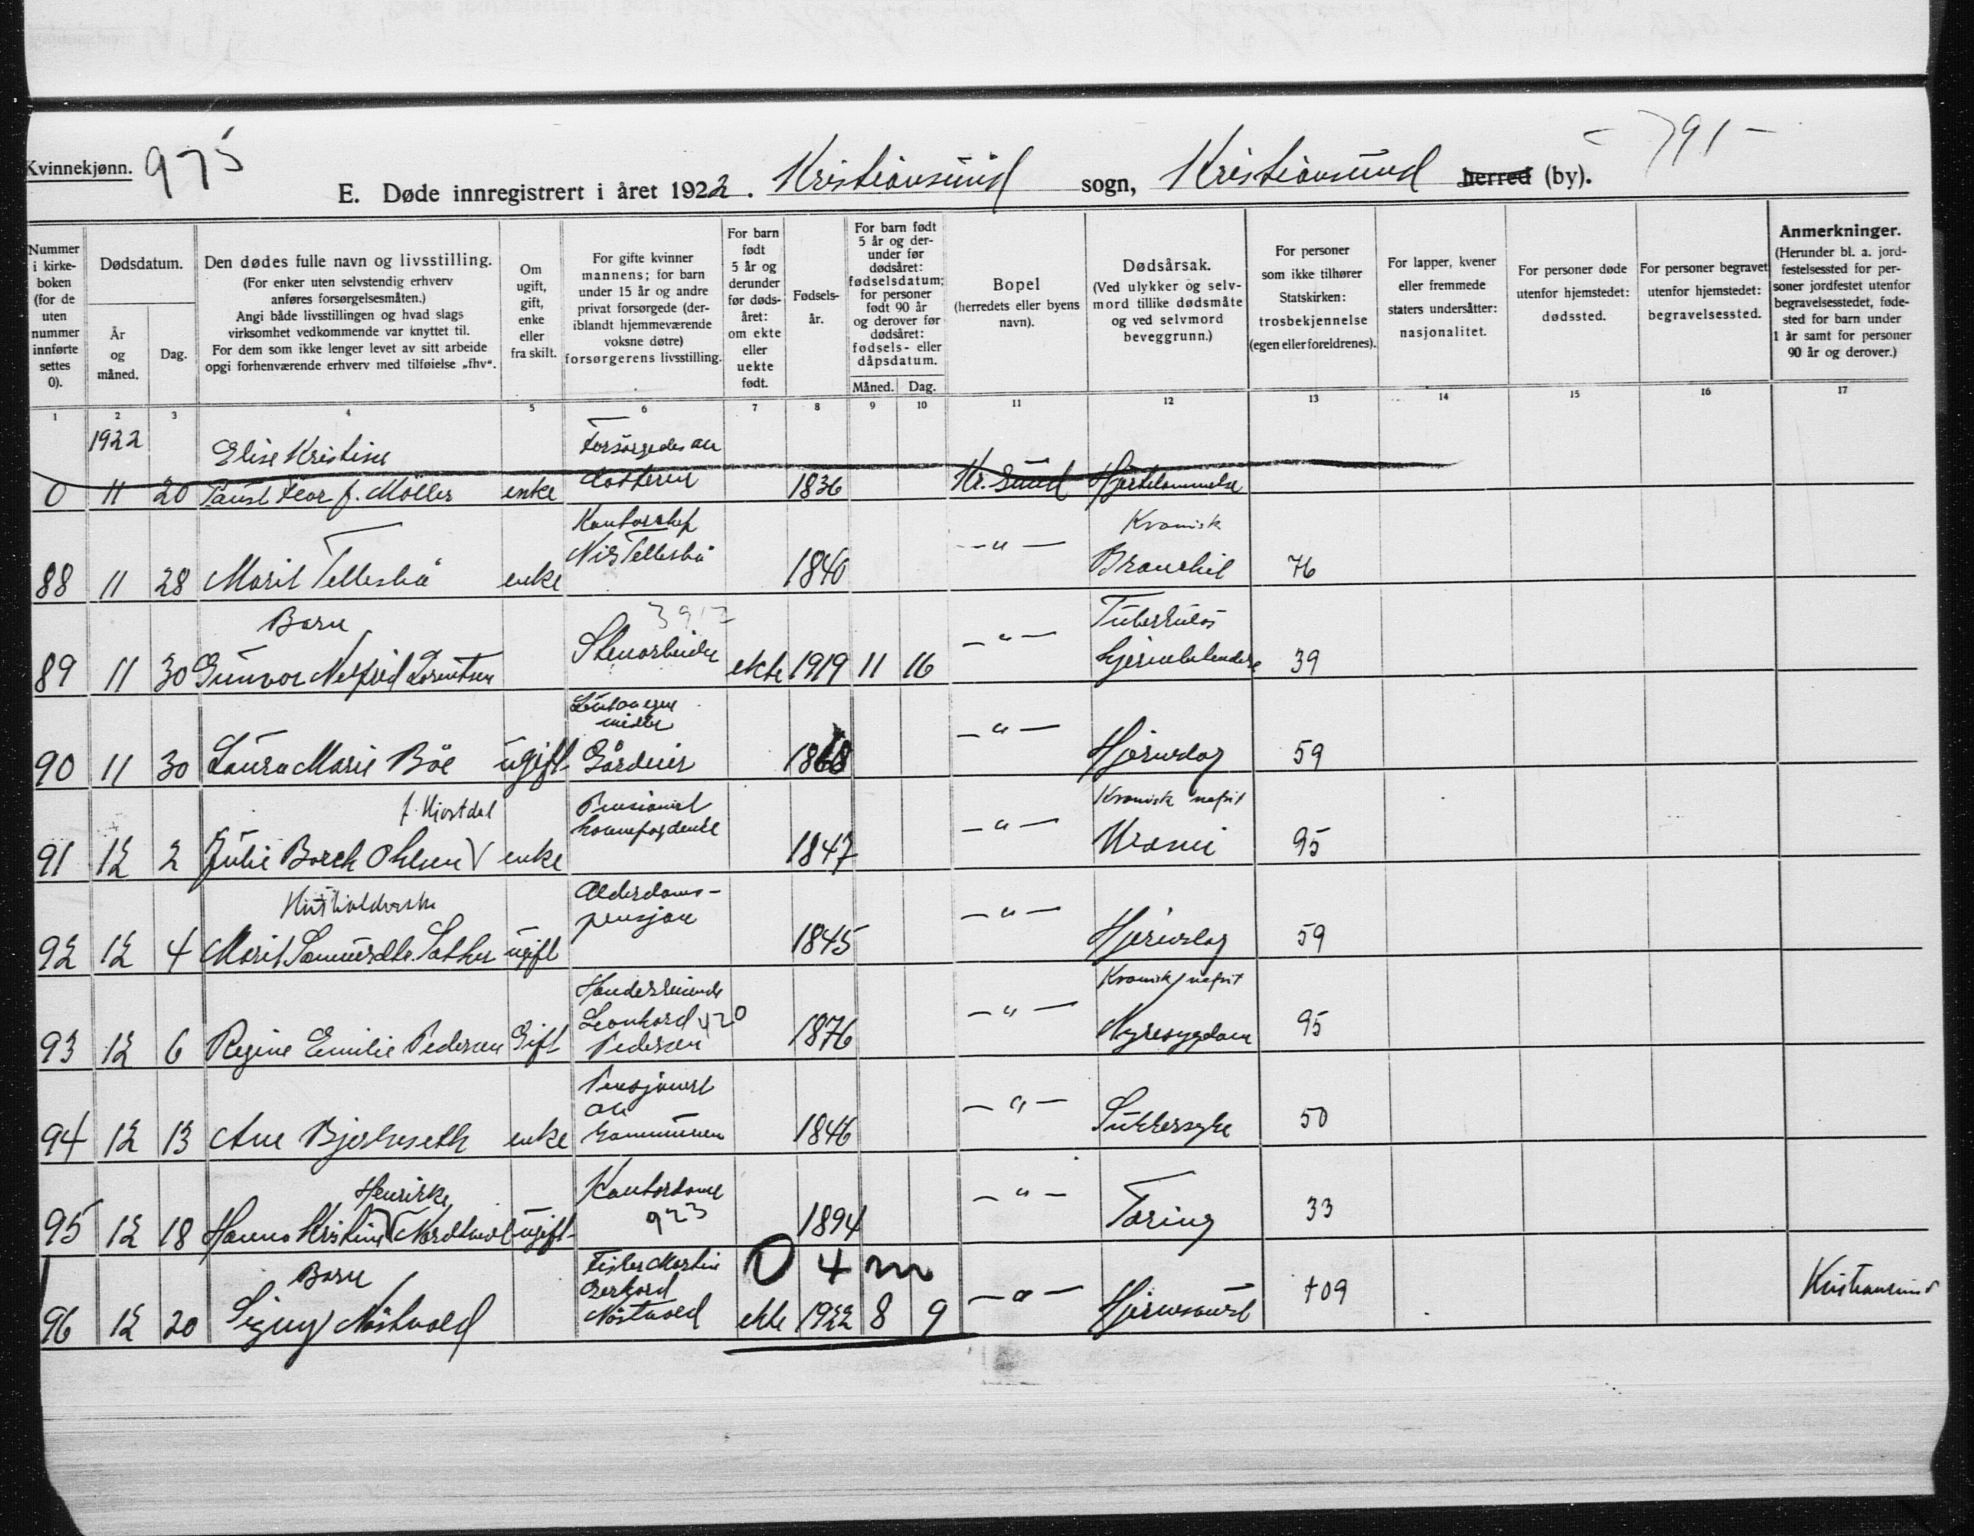 Kvinnekjønn. 975
- 791 -
E. Døde innregistrert i året 1922. Kristiansund sogn, Kristiansund herred (by).
Nummer i kirkeboken (for de uten nummer innførte settes 0).
Dødsdatum.
År og måned.
Dag.
Den dødes fulle navn og livsstilling.
(For enker uten selvstendig erhverv anføres forsørgelsesmåten.)
Angi både livsstillingen og hvad slags virksomhet vedkommende var knyttet til.
For dem som ikke lenger levet av sitt arbeide opgi forhenværende erhverv med tilføielse „fhv“.
Om ugift, gift, enke eller fraskilt.
For gifte kvinner mannens; for barn under 15 år og andre privat forsørgede (deriblandt hjemmeværende voksne døtre) forsørgerens livsstilling.
For barn født 5 år og derunder før dødsåret: om ekte eller uekte født.
Fødselsår.
For barn født 5 år og derunder før dødsåret: fødselsdatum; for personer født 90 år og derover før dødsåret: fødsels- eller dåpsdatum.
Måned. Dag.
Bopel
(herredets eller byens navn).
Dødsårsak.
(Ved ulykker og selvmord tillike dødsmåte og ved selvmord beveggrunn.)
For personer som ikke tilhører Statskirken: trosbekjennelse (egen eller foreldrenes).
For lapper, kvener eller fremmede staters undersåtter: nasjonalitet.
For personer døde utenfor hjemstedet: dødssted.
For personer begravet utenfor hjemstedet: begravelsessted.
Anmerkninger.
(Herunder bl. a. jordfestelsessted for personer jordfestet utenfor begravelsesstedet, fødested for barn under 1 år samt for personer 90 år og derover.)
1 2 3 4 5 6 7 8 9 10 11 12 13 14 15 16 17
1922 Elise Kristine Forsørgedes av
0 11 20 f. Möller enke datteren 1836 Kr.sund Hjertelammelse
Kontorchef Kronisk
88 11 28 Marit Tellesbö enke Nils Tellesbö 1840 -"- Bronchit 76
Barn Tuberkuløs
89 11 30 Gunvor Lorentsen Stenarbeider ekte 1919 11 16 -"- hjernebetendelse 39
midler
90 11 30 Laura Marie Böe ugift Gårdeier 1868 -"- Hjerneslag 59
f. Hjortdal Pensionist Kronisk nefrit
91 12 2 Julie Borch Ohlsen enke 1847 -"- Uræmi 95
Husholderske Alderdoms-
92 12 4 Marit Sæther ugift pensjon 1845 -"- Hjerneslag 59
Handelsreisende Kronisk nefrit
93 12 6 Regine Emilie Pedersen Gift Leonhard Pedersen 420 1876 -"- Nyresygdom 95
Pensjonist
av
94 12 13 Ane Bjerkeseth enke kommunen 1846 -"- Sukkersyke 50
Henrikke Kontordame
95 12 18 Hanna Kristine Nordtvedt ugift 923 1894 -"- Tæring 33
Barn Fisker Martin 0 4 m
96 12 20 Signy Nåstvold Gerhard Nåstvold ekte 1922 8 9 -"- Hjernebetændelse 109 Kristiansund